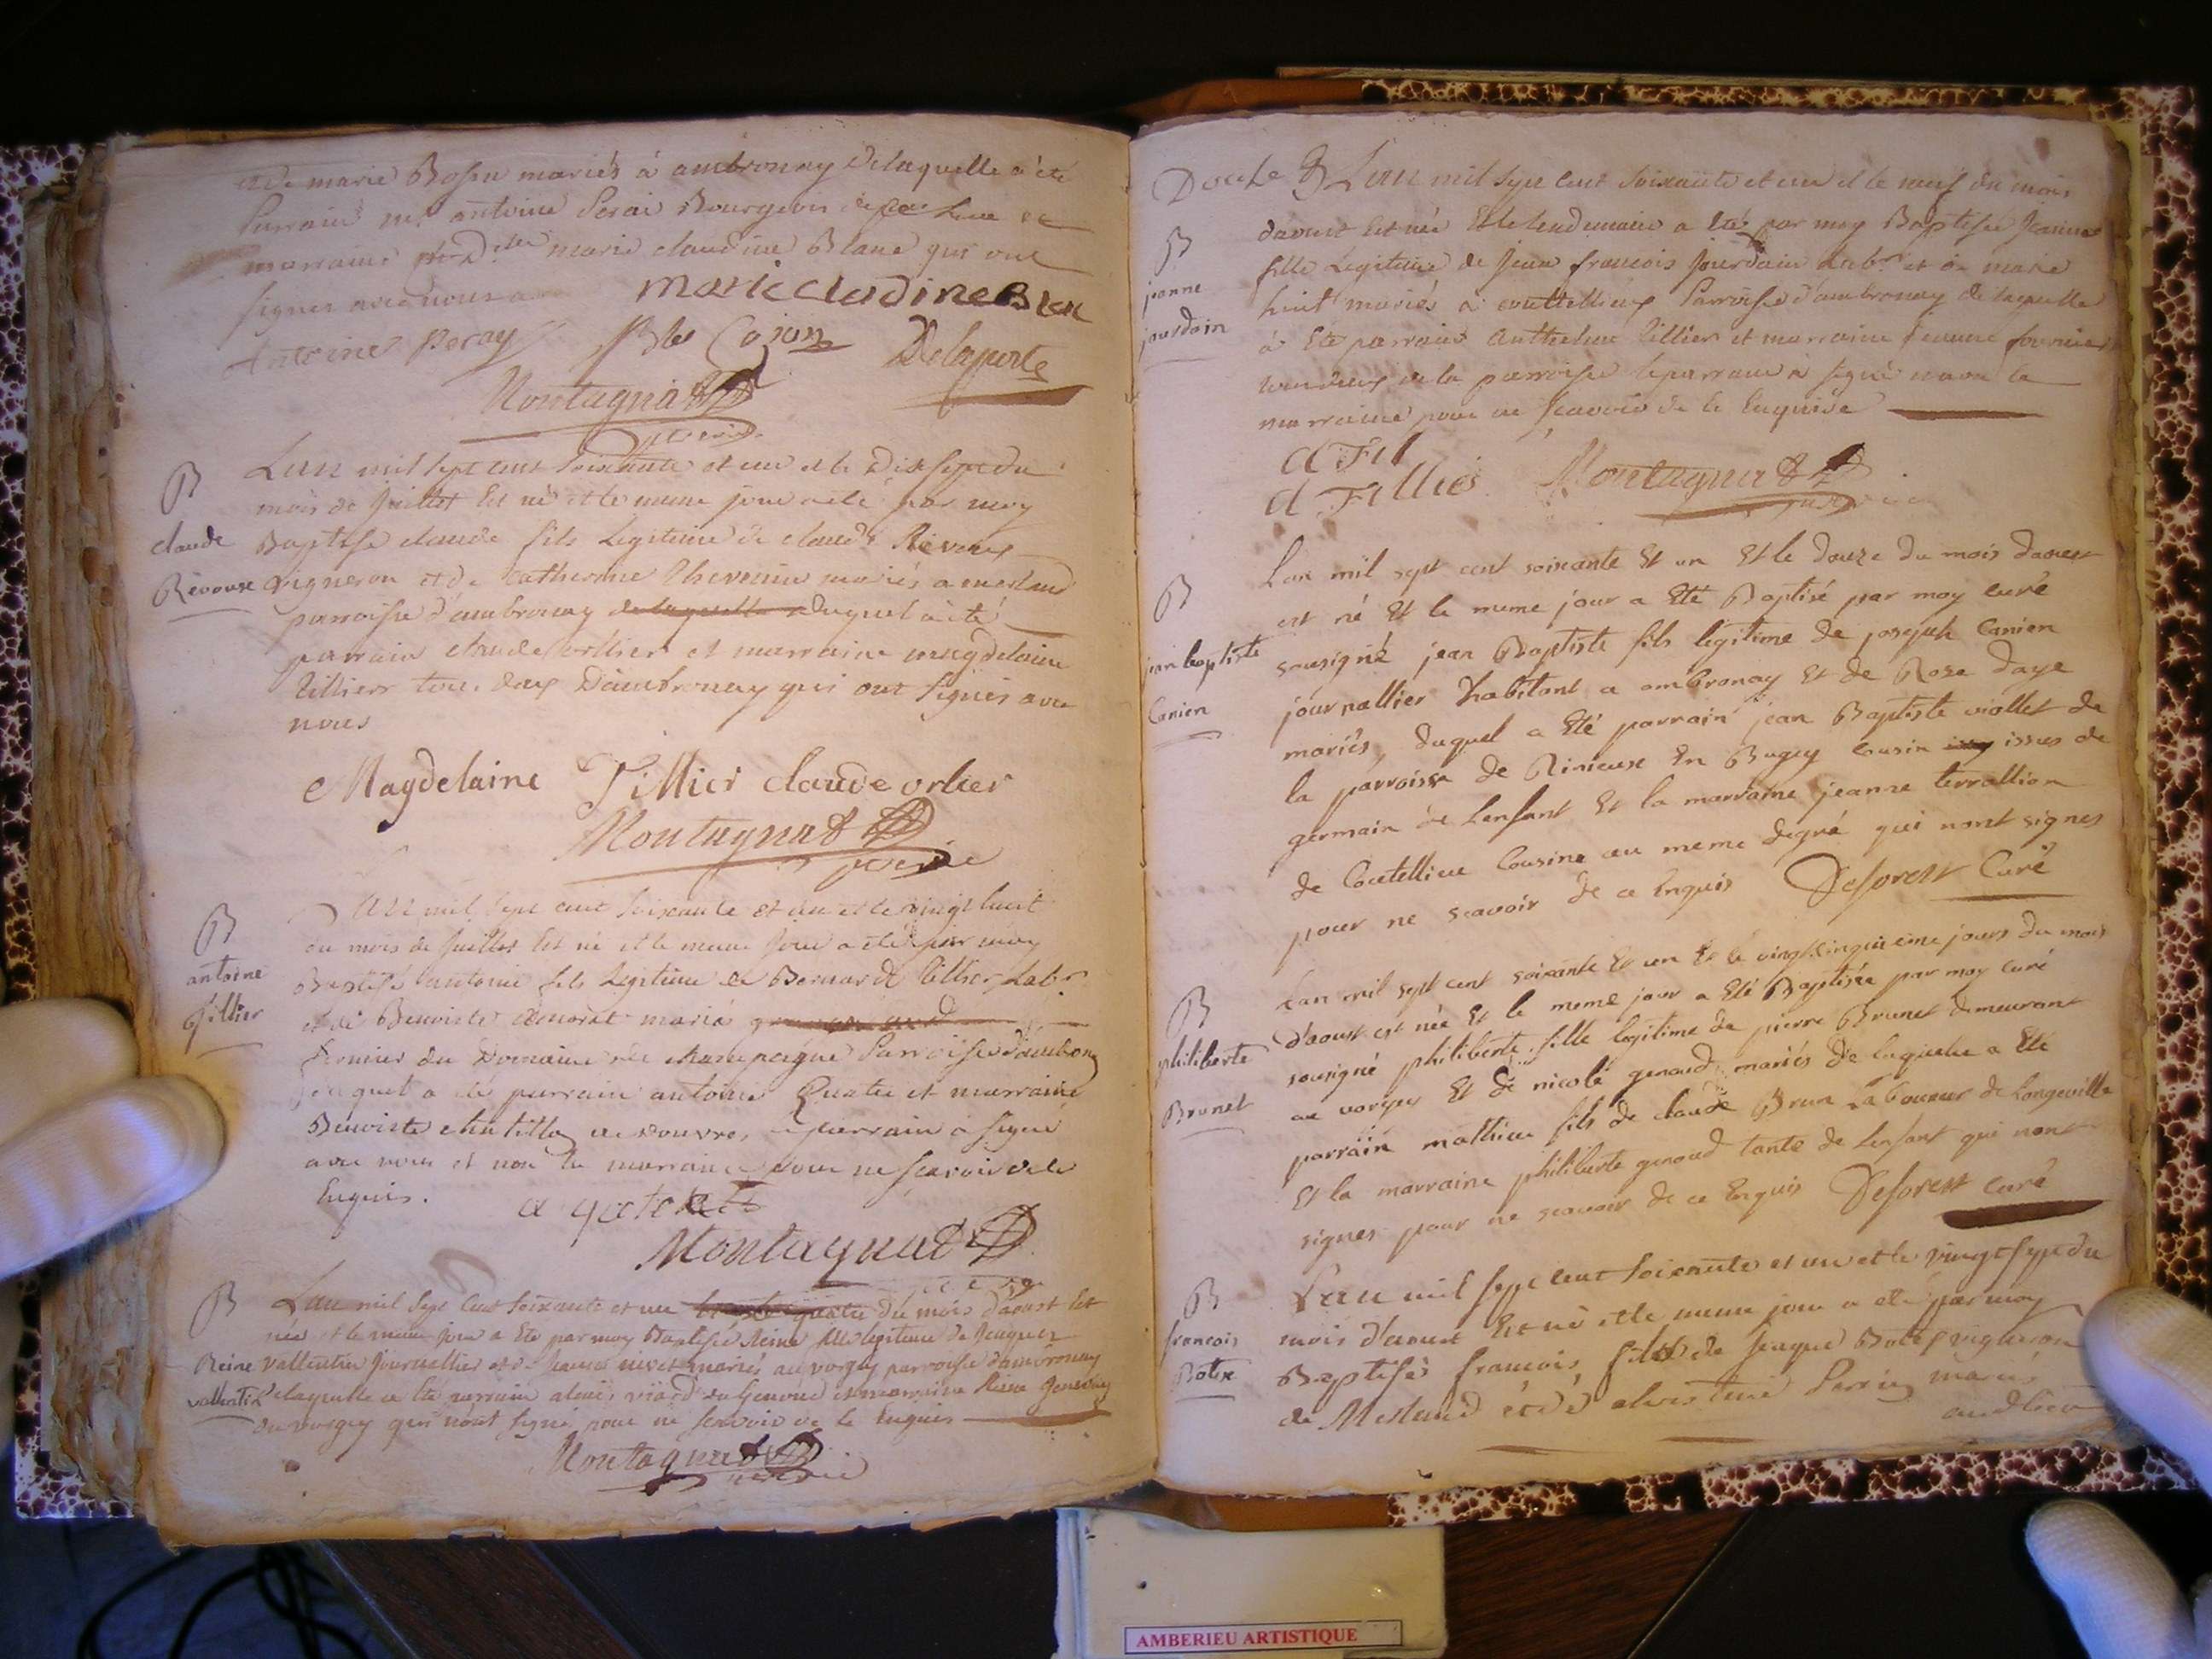 et de marie Bossu mariés à ambronay de laquelle a été
parrain antoine Perai Bourgeois et
marraine marie claudine Blanc qui ont
signes avec nous
marie cladine Blan
Antoine Peray Cojon Delaporte
Montagnat
B
Lan mil sept cent soixante et un et le Dixsept du
mois de Juillet Est né et le meme jour a eté par moy
claude Baptisé claude fils Legitime de claude Reveux
Revoux vigneron et de catherine thevenin mariés a merland
parroisse d'ambronay de laquelle duquel a été
parrain claude orllier et marraine magdelaine
tillier tous deux Dambronay qui ont signés avec
nous
Magdelaine Tillier claude orlier
Montagnat
B
Lan mil sept cent soixante et un et le vingt huit
du mois de Juillet Est né et le meme jour a eté par moy
antoine Baptisé antoine fils Legitime de Bernard tillier Labr
tillier
et de Benoiste mariés
fermier du Domaine de champagne Parroisse d'ambronay
duquel a été parrain antoine Quatre et marraine
Benoiste chatillon de douvres le parrain a signé
avec nous et non la marraine pour ne scavoir de le
Enquis.
Montagnat
B
Lan mil sept cent soixante et un du mois d'aoust Est
née et le meme jour a été par moy Baptisée Reine fille legitime de Jacques
Reine vallentin journallier et de mariés au vorgey parroisse d'ambronay
vallentin delaquelle a été parrain et marraine Reine
du vorgey qui nont signé pour ne scavoir de le Enquis
Montagnat
Double
B Lan mil sept cent soixante et un et le neuf du mois
daoust Est née Et le lendemain a été par moy Baptisée Jeanne
B
jeanne
jourdain
fille Legitime de Jean francois Jourdain Labr et de marie
mariés à couttellieux Parroisse d'ambronay de laquelle
à Eté parrain Anthelme tillier et marraine Jeanne fournier
tous deux de la parroisse le parrain à signé non la
marraine pour ne scavoir de le Enquise
A Fil
A Fillies Montagnat
B
Lan mil sept cent soixante Et un Et le douze du mois daoust
est né Et le meme jour a Eté Baptisé par moy curé
jean baptiste sousigné jean Baptiste fils legitime de joseph Canien
Canien journallier habitant a ambronay Et de Rose daye
mariés, duquel a Eté parrain jean Baptiste viollet de
la parroisse de Rinieuse En Bugey cousin issus de
germain de Lenfant Et la marraine jeanne terrallion
de Coutellieu Cousine au meme degré qui nont signes
pour ne scavoir de ce Enquis Deforest Curé
B
Lan mil sept cent soixante Et un Et le vingtcinquieme jours du mois
d'aoust est née Et le meme jour a Eté Baptisée par moy curé
philiberte sousigné philiberte fille legitime de pierre Brunet demeurant
Brunet au vorgey Et de nicole genoud mariés de laquelle a Eté
parrain mathieu fils de claude Brun laboureur de Longeville
Et la marraine philiberte genoud tante de lenfant qui nont
signes pour ne scavoir de ce Enquis Deforest curé
B
Lan mil sept cent soixante et un et le vingt sept du
francois
Botex
mois d'aoust Est né et le meme jour a eté par moy
Baptisé francois fils de Jaque Botex vigneron
de Merland et de Perrin mariés
audt lieu
AMBERIEU ARTISTIQUE